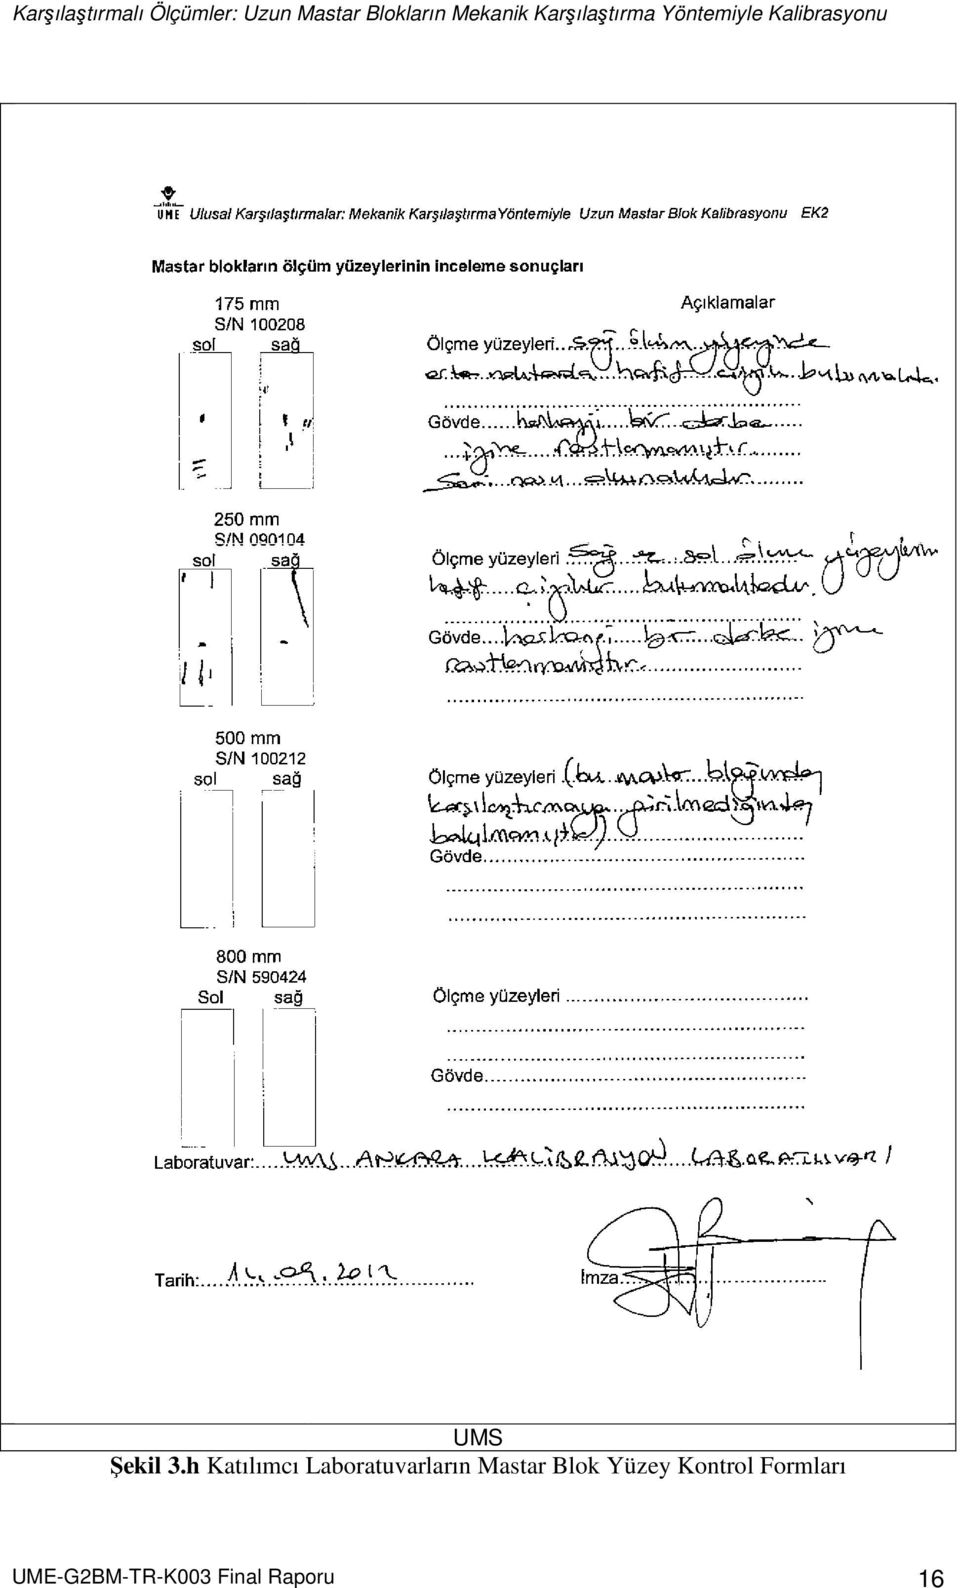 Karşılaştırmalı Ölçümler: Uzun Mastar Blokların Mekanik Karşılaştırma Yöntemiyle Kalibrasyonu
UME Ulusal Karşılaştırmalar: Mekanik KarşılaştırmaYöntemiyle Uzun Mastar Blok Kalibrasyonu EK2
Mastar blokların ölçüm yüzeylerinin inceleme sonuçları
175 mm
Açıklamalar
S/N 100208
sol sağ
Ölçme yüzeyleri...sağ ölçüm yüzeyinde
orta noktalarda hafif çizgiler bulunmakta.
Gövde......herhangi bir darbe
izine rastlanmamıştır.
Seri nosu okunaklıdır.
250 mm
S/N 090104
sol sağ
Ölçme yüzeyleri sağ ve sol ölçme yüzeylerin
hafif çizikler bulunmaktadır.
Gövde...herhangi bir darbe izine
rastlanmamıştır.
500 mm
S/N 100212
sol sağ
Ölçme yüzeyleri (bu mastar bloğunda
karşılaştırmaya girilmediğinden
bakılmamıştır)
Gövde
800 mm
S/N 590424
Sol sağ
Ölçme yüzeyleri
Gövde
Laboratuvar:.....UMS ANKARA KALİBRASYON LABORATUVARI
Tarih:.....14.09.2012
İmza
UMS
Şekil 3.h Katılımcı Laboratuvarların Mastar Blok Yüzey Kontrol Formları
UME-G2BM-TR-K003 Final Raporu 16